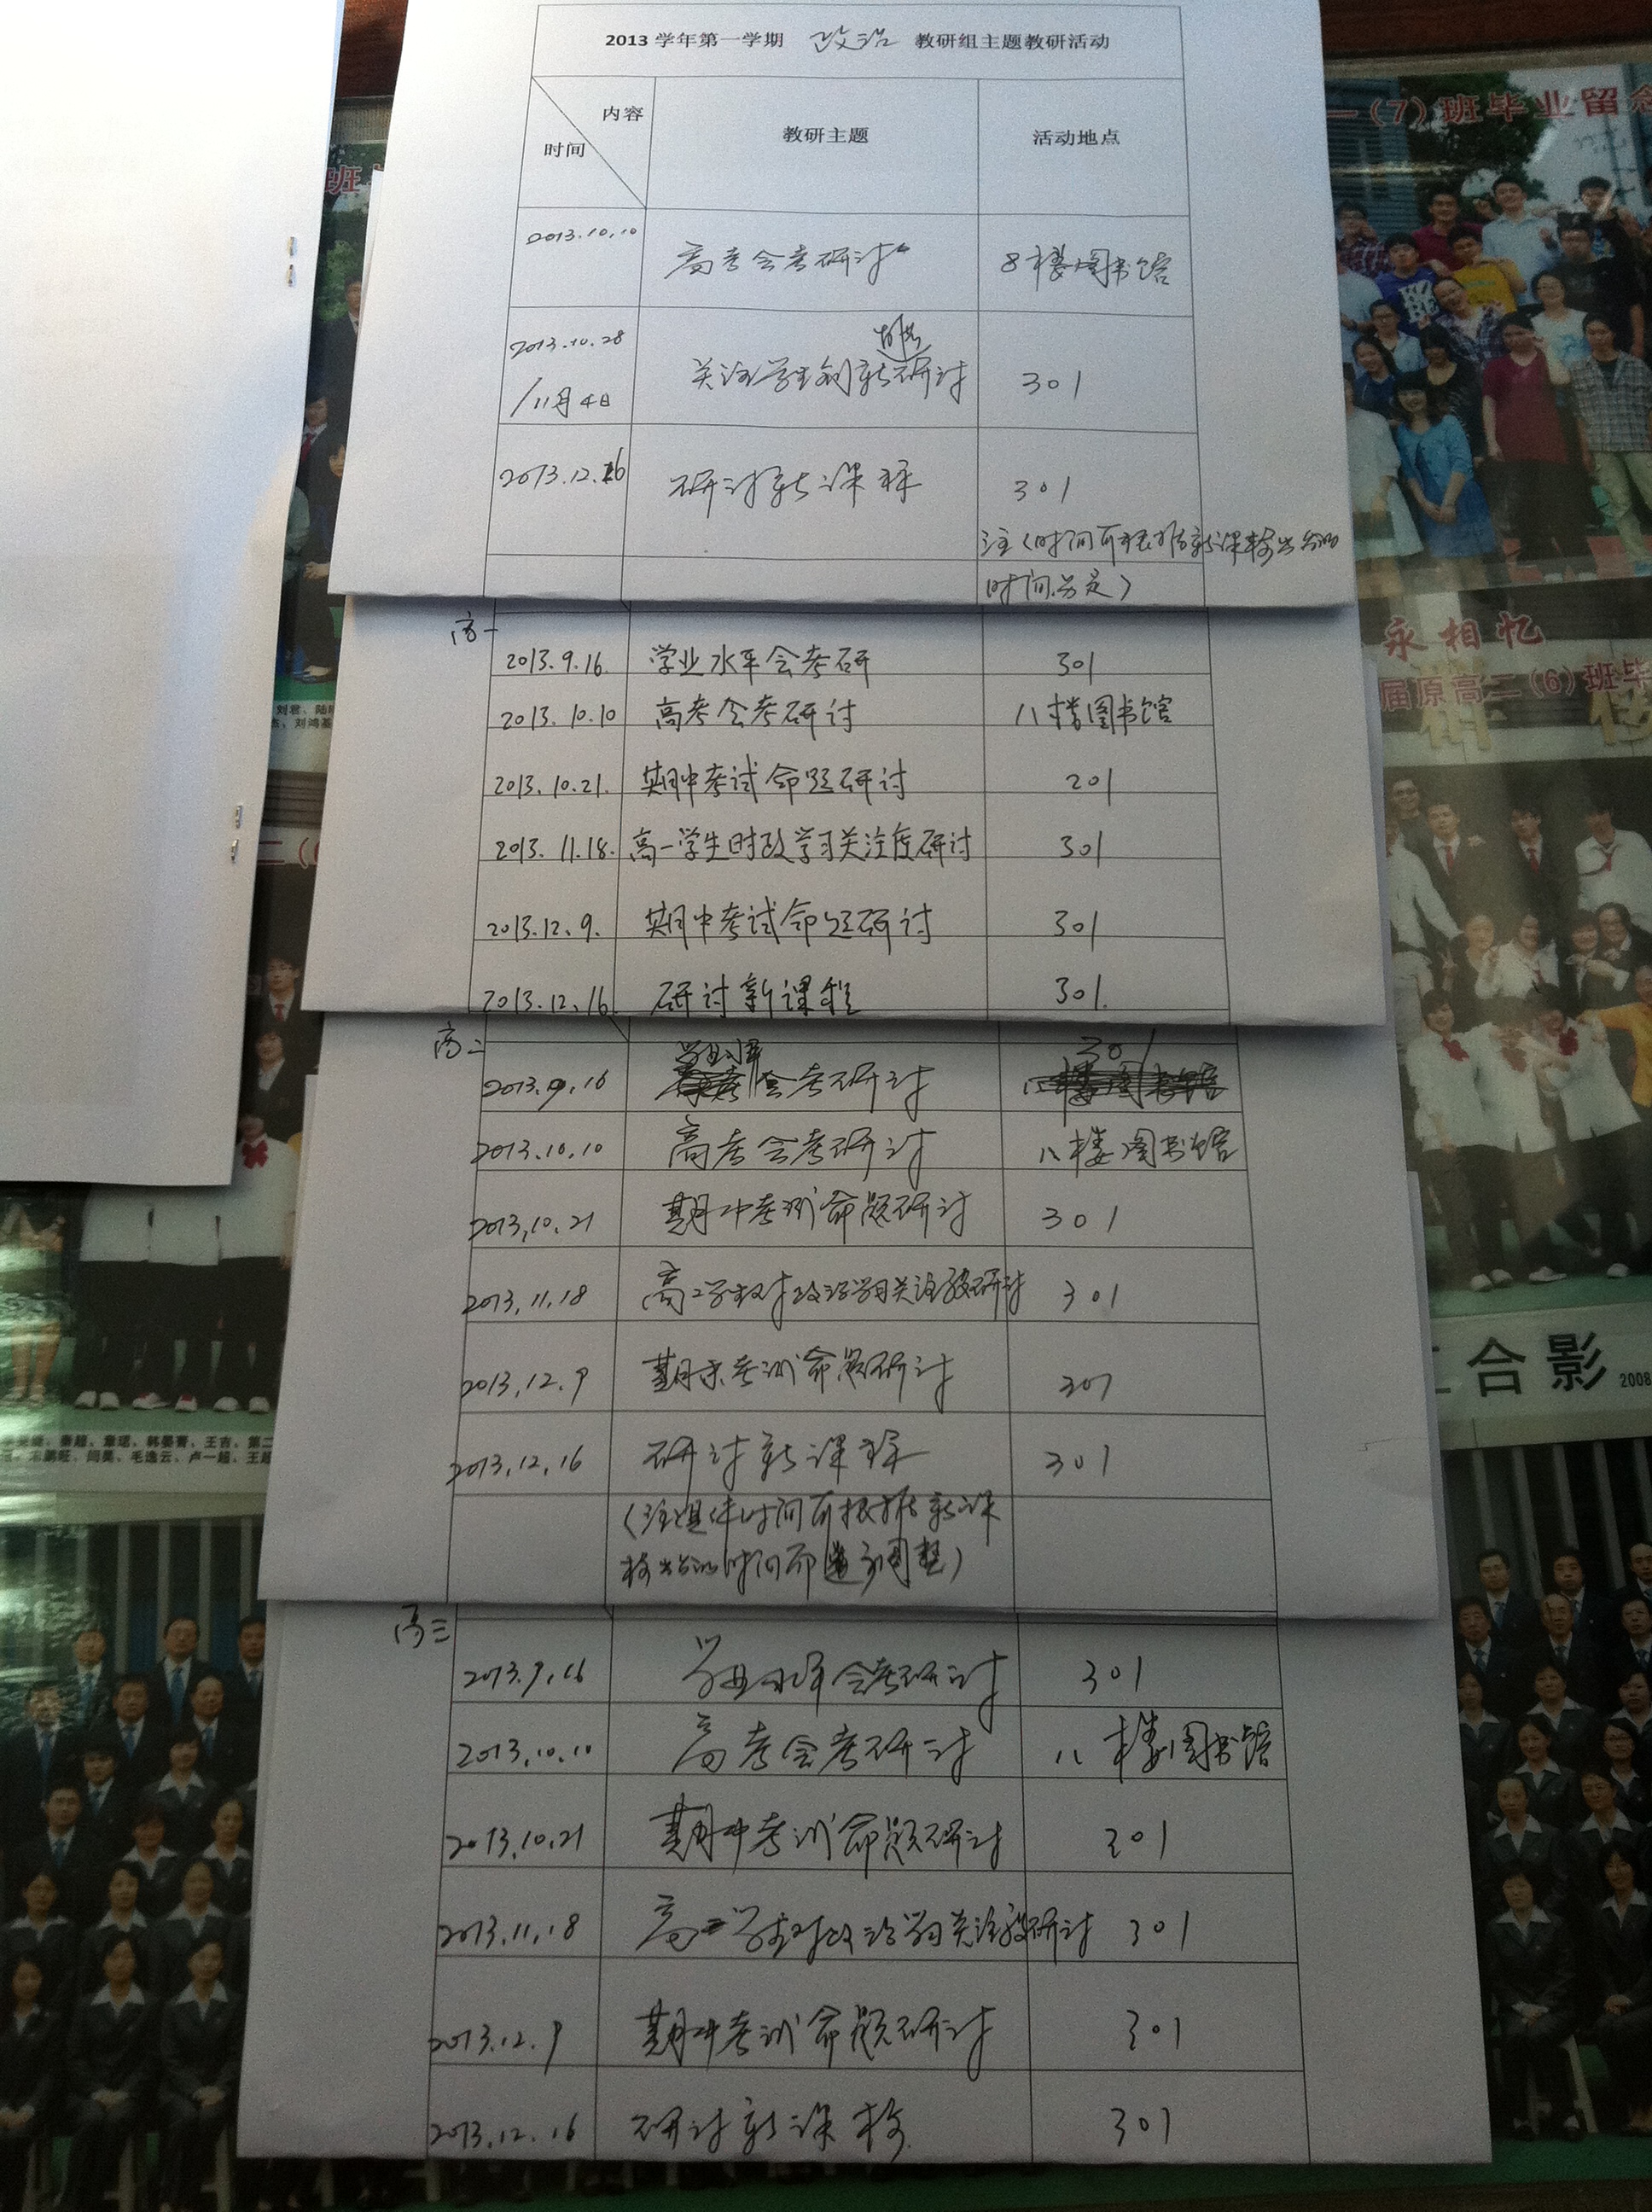 2013 学年第一学期 政治 教研组主题教研活动
内容
时间
教研主题
活动地点
2013.10.10 高考会考研讨 8楼图书馆
2013.10.28
/11月4日
关注学生创新研讨 301
2013.12.16 研讨新课程 301
注(时间可根据新课标出台的
时间另定)
高一
2013.9.16. 学业水平会考研 301
2013.10.10 高考会考研讨 八楼图书馆
2013.10.21. 期中考试命题研讨 201
2013.11.18. 高一学生时政学习关注度研讨 301
2013.12.9. 期中考试命题研讨 301
2013.12.16 研讨新课程 301.
高二
2013.9.16 学业水平会考研讨 301
2013.10.10 高考会考研讨 八楼图书馆
2013.10.21 期中考试命题研讨 301
2013.11.18 高二学生对政治学习关注度研讨 301
2013.12.9 期末考试命题研讨 301
2013.12.16 研讨新课程 301
(注具体时间可根据新课
标出台的时间而调整)
高三
2013.9.16 学业水平会考研讨 301
2013.10.10 高考会考研讨 八楼图书馆
2013.10.21 期中考试命题研讨 301
2013.11.18 高三学生对政治学习关注度研讨 301
2013.12.9 期中考试命题研讨 301
2013.12.16 研讨新课标 301
一(7)班毕业留念
永相忆
届原高二(6)班毕
合影 2008
班
刘君、陆
杰、刘鸿基
二(
秦超、章珺、韩晏菁、王吉、第二
闫美、毛逸云、卢一超、王超